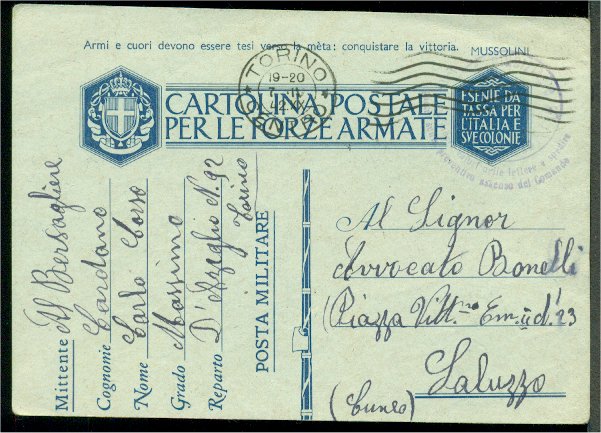 Armi e cuori devono essere tesi verso la mèta: conquistare la vittoria. MUSSOLINI
TORINO
19-20
CARTOLINA POSTALE
PER LE FORZE ARMATE
ESENTE DA
TASSA PER
L'ITALIA E
SVE COLONIE
Mittente Al Bersagliere
Cognome Cardano
Nome Carlo Corso
Grado Massimo
Reparto D'Azeglio N. 92
Torino
POSTA MILITARE
Al Signor
Avvocato Bonelli
Piazza Vitt. Em. II d. 23
Saluzzo
(Cuneo)